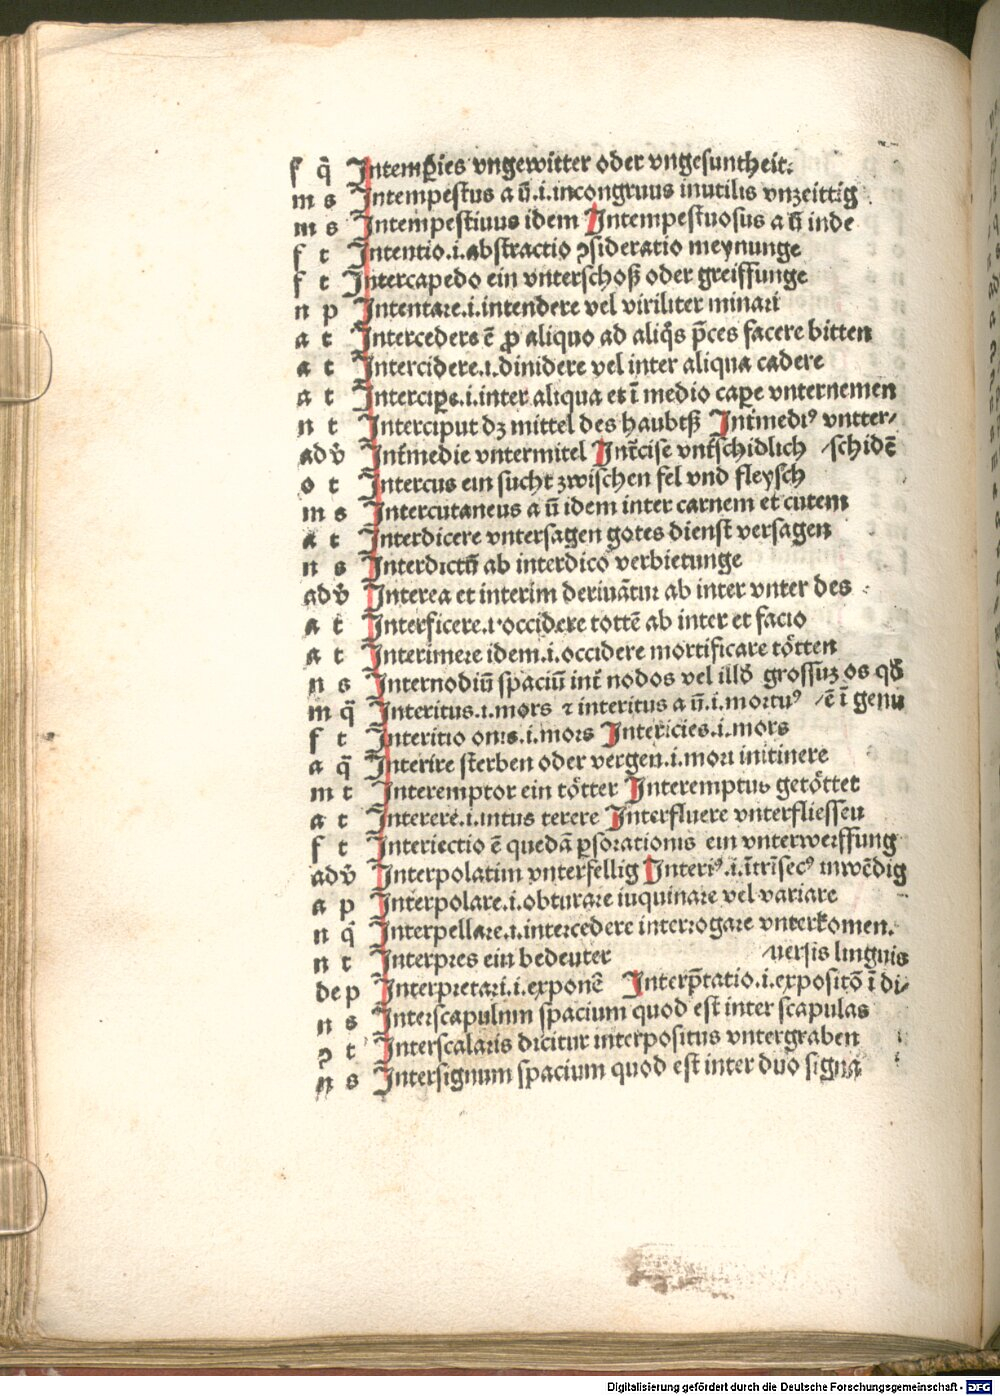 f q̄ Intemp̲ies vngewitter oder vngesuntheit.
m s Intempestus a ū.i.incongruus inutilis vnzeittig
m s Intempestiuus idem Intempestuosus a ū inde
f t Intentio.i.abstractio ꝯsideratio meynunge
f t Intercapedo ein vnterschoß oder greiffunge
n p Intentare.i.intendere vel viriliter minari
a t Intercedere ē ꝓ aliquo ad aliq̄s p̄ces facere bitten
a t Intercidere.i.diuidere vel inter aliqua cadere
a t Intercip̲e.i.inter aliqua et ī medio cap̲e vnternemen
n t Interciput dz mittel des haubtß Int̄medi⁹ vntter/
adv̄ Int̄medie vntermitel Int̄cise vnt̄schidlich /schidē
o t Intercus ein sucht zwischen fel vnd fleysch
m s Intercutaneus a ū idem inter carnem et cutem
a t Interdicere vntersagen gotes dienst versagen
n s Interdictū ab interdico verbietunge
adv̄ Interea et interim deriuāt̄ur ab inter vnter des
a t Interficere.i.occidere tottē ab inter et facio
a t Interimere idem.i.occidere mortificare tötten
n s Internodiū spaciū int̄ nodos vel illd̄ grossuz os qd̄
m q̄ Interitus.i.mors ⁊ interitus a ū.i.mortu⁹ /ē ī genu
f t Interitio onis.i.mors Intericies.i.mors
a q̄ Interire sterben oder vergen.i.mori initinere
m t Interemptor ein tötter Interemptus getöttet
a t Interere.i.intus terere Interfluere vnterfliessen
f t Interiectio ē quedā p̲sorationis ein vnterwerffung
adv̄ Interpolatim vnterfellig Interi⁹.i.ītrīsec⁹ inwēdig
a p Interpolare.i.obturare iuquinare vel variare
n q̄ Interpellare.i.intercedere interrogare vnterkomen.
n t Interpres ein bedeuter /uersis linguis
dep Interpretari.i.exponē Interp̄tatio.i.expositō ī di/
n s Interscapulum spacium quod est inter scapulas
ꝯ t Interscalaris dicitur interpositus vntergraben
n s Intersignum spacium quod est inter duo signa
Digitalisierung gefördert durch die Deutsche Forschungsgemeinschaft - DFG